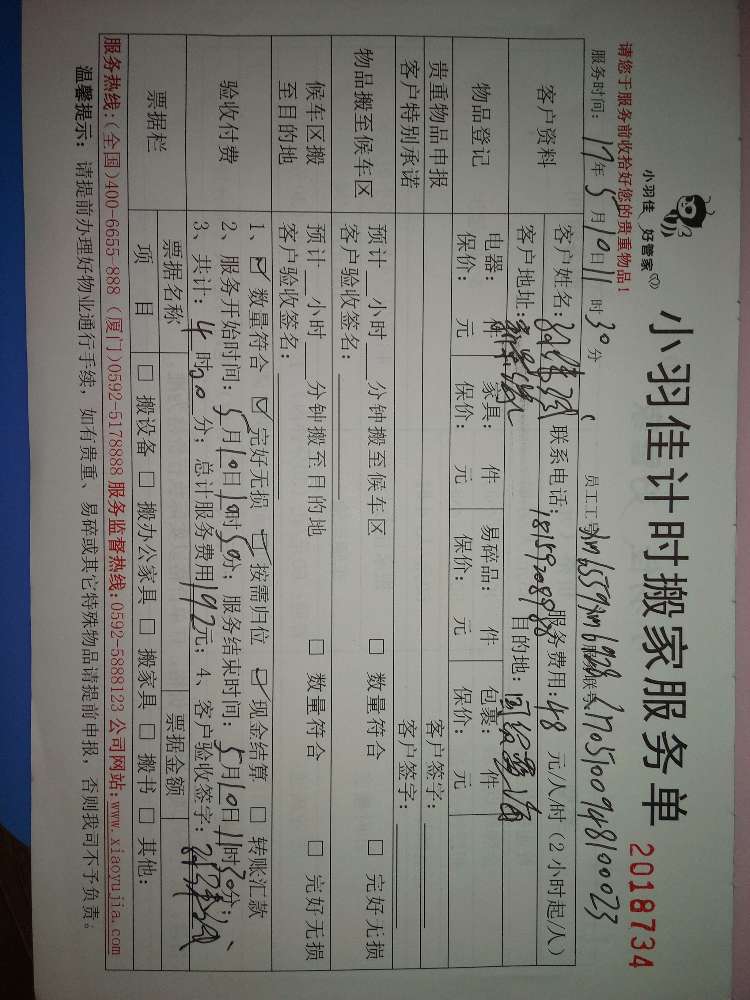 小羽佳 好管家
小羽佳计时搬家服务单
2018734
请您于服务前收拾好您的贵重物品!
服务时间: 17年5月10日11时30分 员工工号: 6559 6928 服务联号: 21705100948100023
客户资料
客户姓名: 联系电话: 18159208988 服务费用: 48 元/人/时(2小时起/人)
客户地址: 目的地:
物品登记
电器: 件 家具: 件 易碎品: 件 包裹: 件
保价: 元 保价: 元 保价: 元 保价: 元
贵重物品申报 客户签字:
客户特别承诺 客户签字:
物品搬至候车区
预计__小时__分钟搬至候车区 □ 数量符合 □ 完好无损
客户验收签名:
候车区搬至目的地
预计__小时__分钟搬至目的地 □ 数量符合 □ 完好无损
客户验收签名:
验收付费
1、☑ 数量符合 ☑ 完好无损 ☑ 按需归位 ☑ 现金结算 □ 转账汇款
2、服务开始时间: 5月10日 时50分; 服务结束时间: 5月10日11时30分;
3、共计: 4时20分; 总计服务费用192元; 4、客户验收签字:
票据栏
票据名称 票据金额
项目 □ 搬设备 □ 搬办公家具 □ 搬家具 □ 搬书 □ 其他:
服务热线:(全国)400-6655-888 (厦门)0592-5178888 服务监督热线:0592-5888123 公司网站:www.xiaoyujia.com
温馨提示: 请提前办理好物业通行手续, 如有贵重、易碎或其它特殊物品请提前申报, 否则我司不予负责。